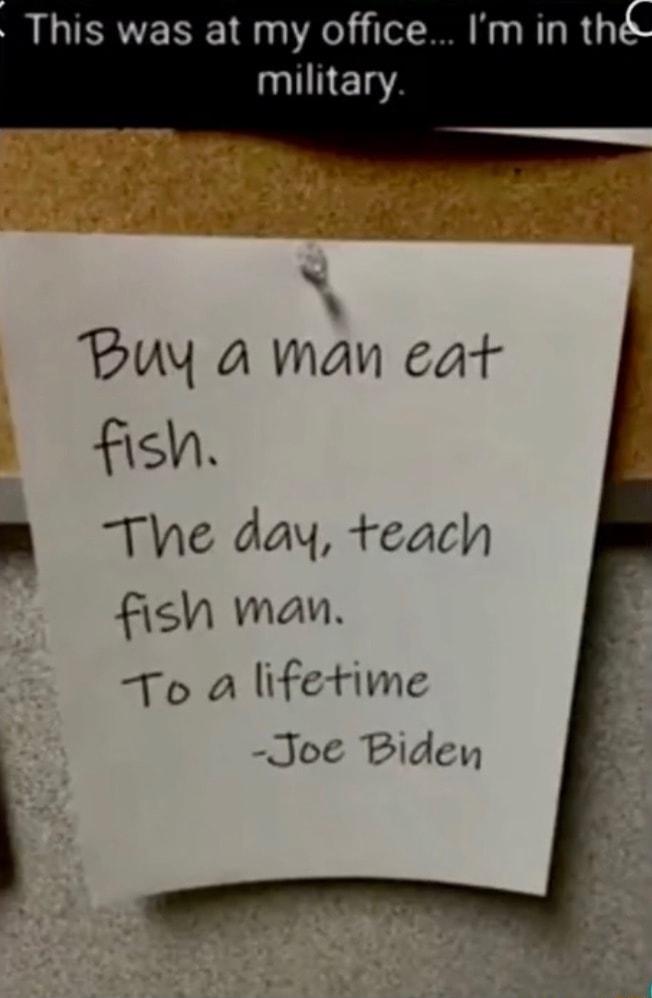 This was at my office... I'm in the
military.
Buy a man eat
fish.
The day, teach
fish man.
To a lifetime
-Joe Biden